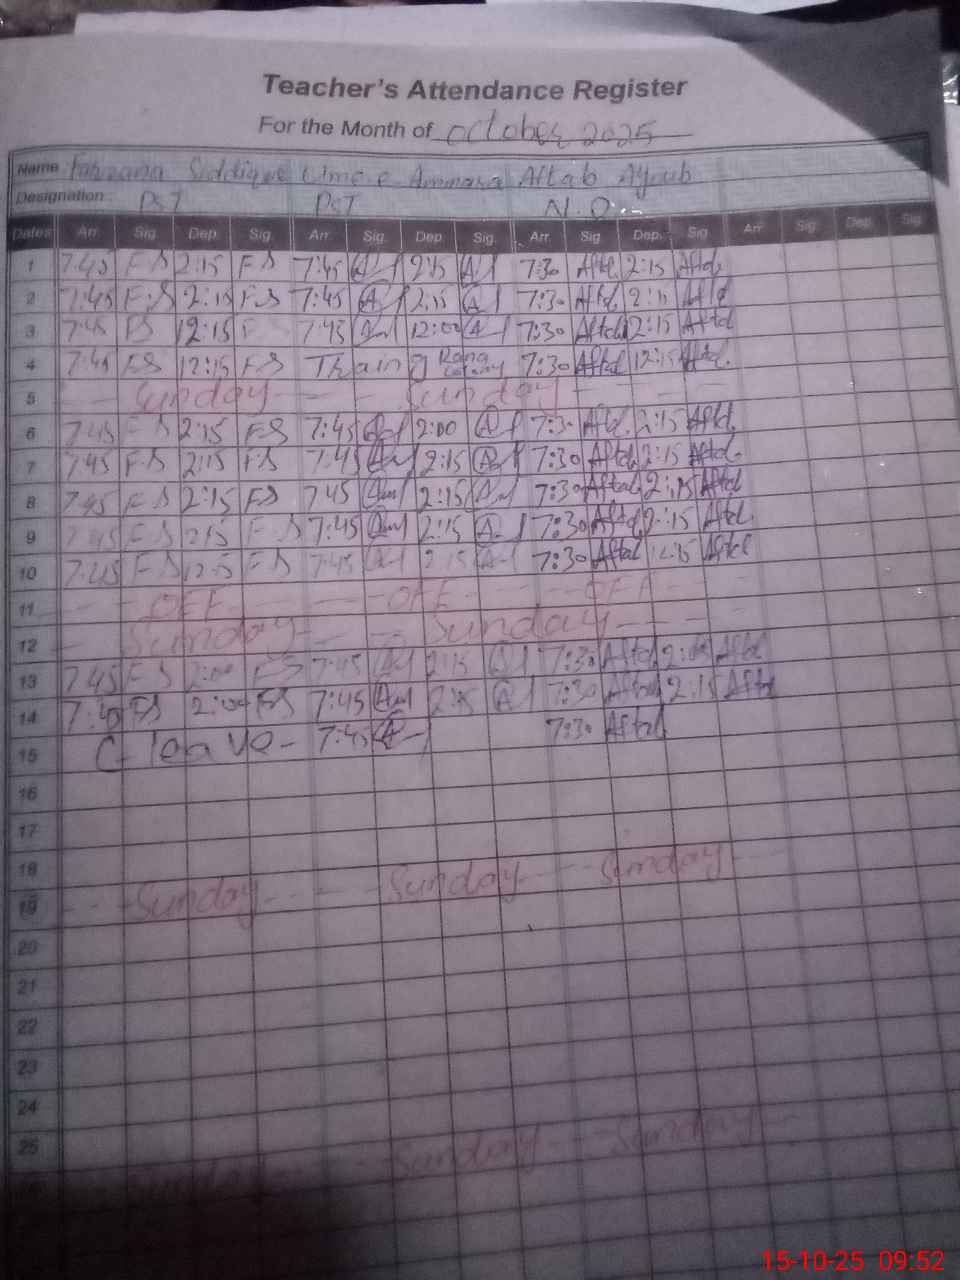 Teacher's Attendance Register
For the Month of October 2025
Name Farzana Siddique Ume Ammara Aftab Ayoub
Designation PST PST N.Q
Dates Arr. Sig. Dep. Sig. Arr. Sig. Dep. Sig. Arr. Sig. Dep. Sig. Arr. Sig. Dep. Sig.
1 7:45 FS 2:15 FS 7:45 2:15 7:30 Aftd. 2:15 Aftd.
2 7:45 F.S 2:15 FS 7:45 2:15 7:30 Aftd. 2:15 Aftd
3 7:45 FS 12:15 F 7:45 12:00 7:30 Aftab 12:15 Aftd
4 7:45 FS 12:15 FS Thraining 7:30 Aftab 12:15 Aftd.
5 Sunday Sunday
6 7:45 FS 2:15 F.S 7:45 2:00 7:30 Aftd. 2:15 Aftd.
7 7:45 F.S 2:15 FS 7:45 2:15 7:30 Aftd. 2:15 Aftd.
8 7:45 FS 2:15 FS 7:45 2:15 7:30 Aftab. 2:15 Aftd
9 7:45 FS 2:15 FS 7:45 2:15 7:30 Aftd 2:15 Aftd.
10 7:45 FS FS 7:45 7:30 Aftab Aftd
11 OFF OFF OFF
12 Sunday Sunday
13 7:45 FS 2:00 FS 7:45 2:15 7:30 Aftd Aftd
14 FS 2:00 FS 7:45 7:30 Aftab 2:15 Aftd
15 C-leave 7:45 7:30 Aftab
16
17
18
19 Sunday Sunday Sunday
20
21
22
23
24
25
Sunday Sunday Sunday
15-10-25 09:52